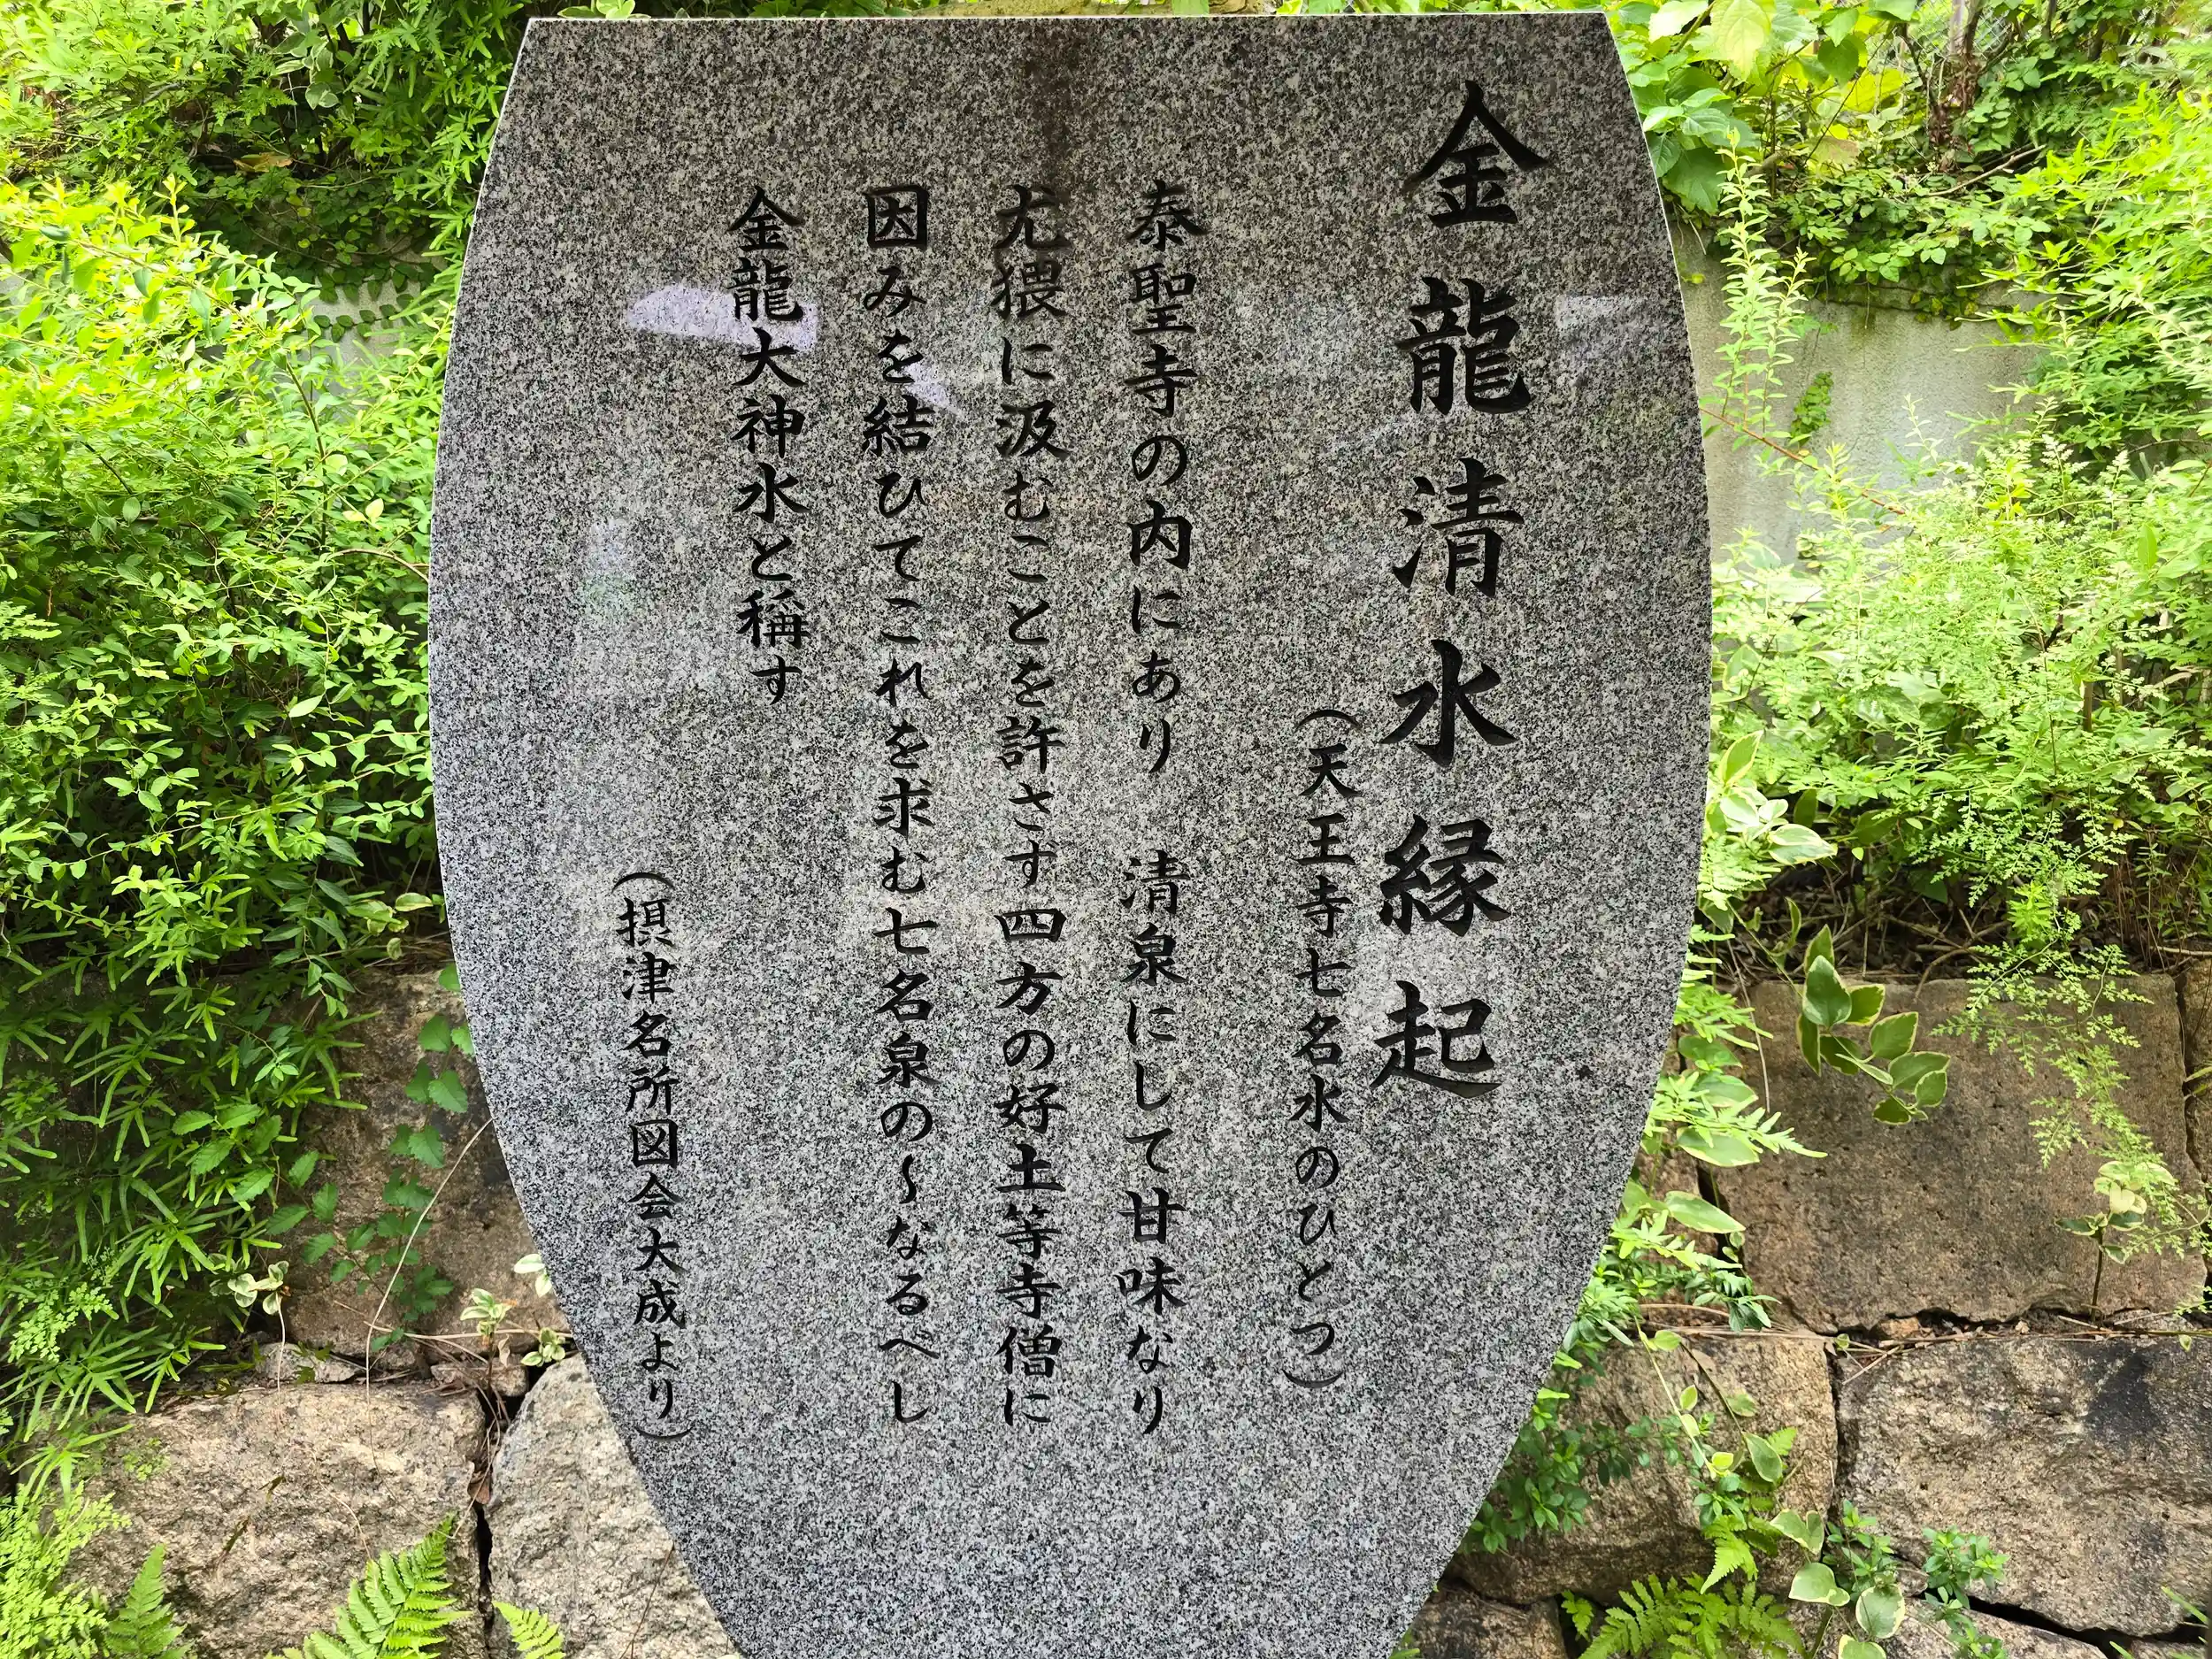 金龍清水縁起
(天王寺七名水のひとつ)
泰聖寺の内にあり　清泉にして甘味なり
尤猥に汲むことを許さず四方の好士等寺僧に
因みを結ひてこれを求む七名泉の〱なるべし
金龍大神水と稱す
(摂津名所図会大成より)